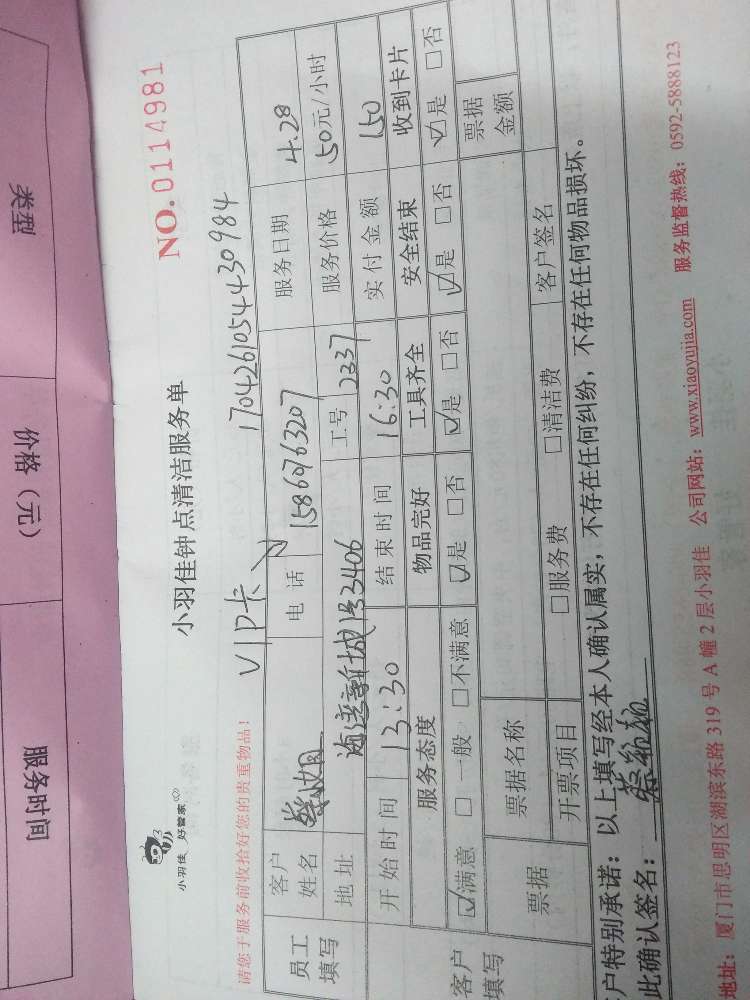 小羽佳 好管家
小羽佳钟点清洁服务单
NO.0114981
请您于服务前收拾好您的贵重物品!
VIP卡
17042610544430984
员工填写
客户姓名
电话 15869763207
服务日期 4.28
地址
3406
工号 2337
服务价格 50元/小时
开始时间 13:30
结束时间 16:30
实付金额 150
服务态度 物品完好 工具齐全 安全结束 收到卡片
客户填写
☑满意 □一般 □不满意 ☑是 □否 ☑是 □否 ☑是 □否 ☑是 □否
票据
票据名称
票据金额
开票项目
□服务费 □清洁费
客户签名
户特别承诺：以上填写经本人确认属实，不存在任何纠纷，不存在任何物品损坏。
此确认签名：
地址：厦门市思明区湖滨东路 319 号 A 幢 2 层小羽佳 公司网站：www.xiaoyujia.com 服务监督热线：0592-5888123
类型
价格（元）
服务时间